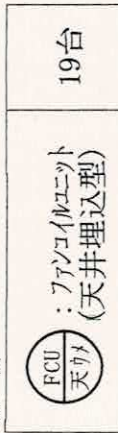 FCU
天ウメ
：ファンコイルユニット
(天井埋込型)
19台